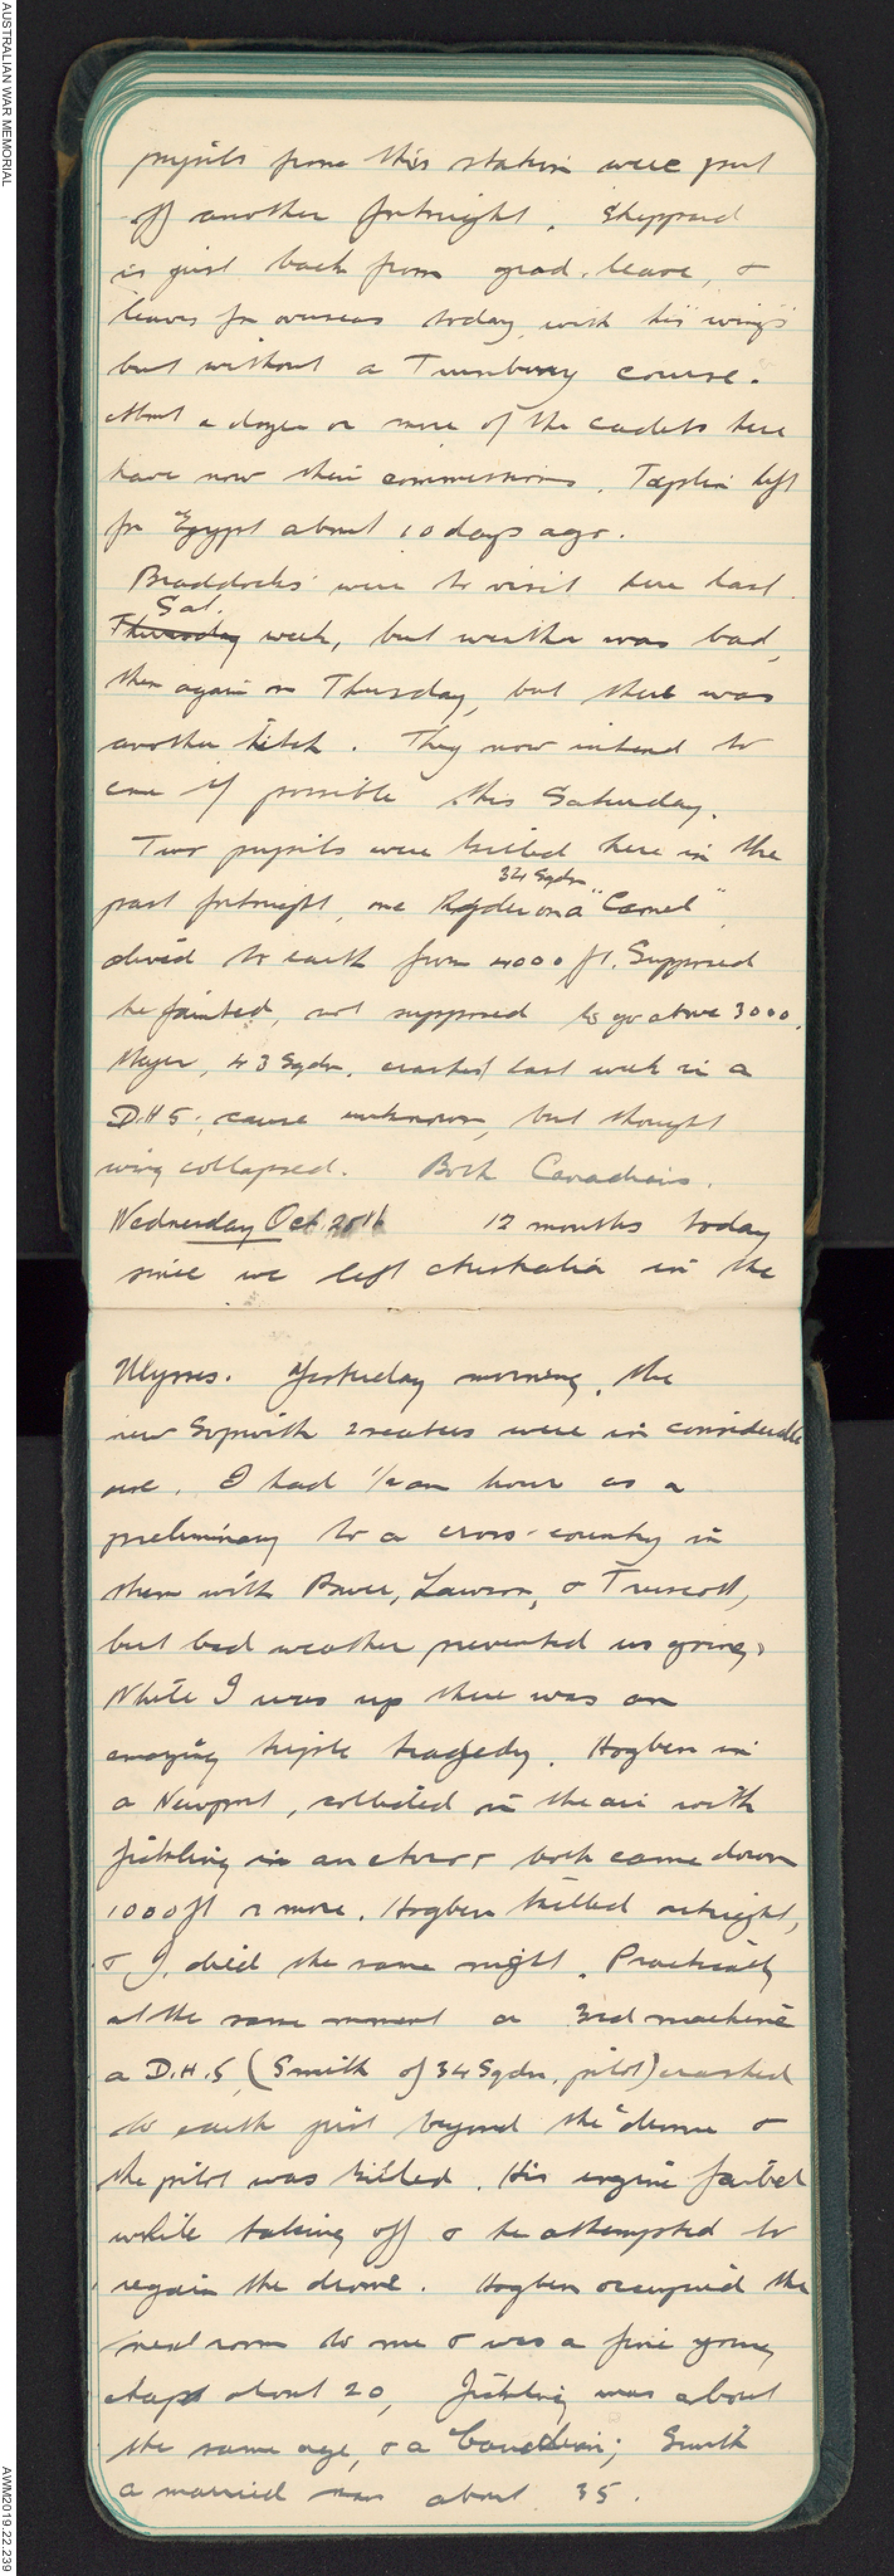 AUSTRALIAN WAR MEMORIAL
pupils from this station were put
off another fortnight. Sheppard
is just back from grad. leave, &
leaves for overseas today with his "wings"
but without a Turnberry course.
About a dozen or more of the cadets here
have now their commissions. Taplin left
for Egypt about 10 days ago.
Braddocks' were to visit here last
Sat.
Thursday week, but weather was bad,
then again on Thursday, but there was
another hitch. They now intend to
come if possible this Saturday.
Two pupils were killed here in the
34 Sqdn
past fortnight, one on a "Camel"
dived to earth from 4000 ft. Supposed
he fainted, not supposed to go above 3000.
43 Sqdn, crashed last week in a
D.H 5; cause unknown, but thought
wing collapsed. Both Canadians.
Wednesday Oct.
12 months today
since we left Australia in the
Ulysses. Yesterday morning, the
new Sopwith 2 seaters were in considerable
use. I had 1/2 an hour as a
preliminary to a cross-country in
them with Lawson, & Truscott,
but bad weather prevented us going.
While I was up there was an
amazing triple tragedy. Hogben in
a Newport, collided in the air with
in an Avro & both came down
1000 ft or more. Hogben killed outright,
& J. died the same night. Practically
at the same moment a 3rd machine
a D.H.5 (Smith of 34 Sqdn, pilot) crashed
to earth just beyond the 'drome &
the pilot was killed. His engine failed
while taking off & he attempted to
regain the drome. Hogben occupied the
next room to me & was a fine young
chap about 20, was about
the same age, & a Canadian; Smith
a married man about 35.
AWM2019.22.239